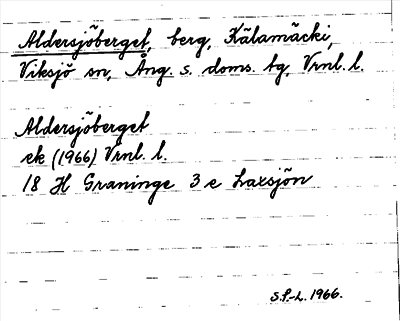 Aldersjöberget, berg, Kälamäcki,
Viksjö sn, Ång. s. doms. tg, Vrnl. l.
Aldersjöberget
ek (1966) Vrnl. l.
18 H Graninge 3 e Laxsjön
S.P.-L. 1966.